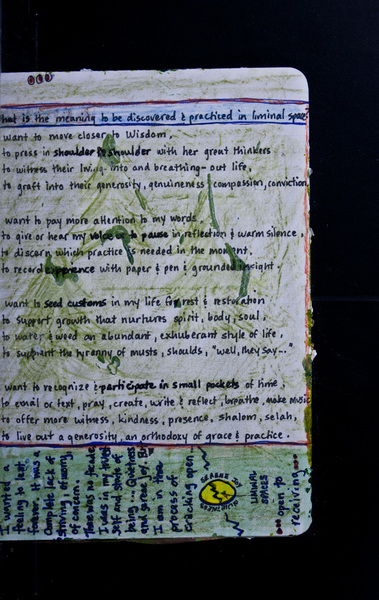 hat is the meaning to be discovered & practiced in liminal space
want to move closer to Wisdom,
to press in shoulder to shoulder with her great thinkers
to witness their living-into and breathing-out life,
to graft into their generosity, genuineness & compassion, conviction
want to pay more attention to my words.
to give or hear my voice & to pause in reflection & warm silence,
to discern which practice is needed in the moment,
to record experience with paper & pen & grounded insight.
want to seed customs in my life for rest & restoration
to support growth that nurtures spirit, body, soul,
to water & weed an abundant, exhuberant style of life,
to supplant the tyranny of musts, shoulds, "well, they say..."
want to recognize & participate in small pockets of time,
to email or text, pray, create, write & reflect, breathe, make music
to offer more witness, kindness, presence, shalom, selah,
to live out a generosity, an orthodoxy of grace & practice.
I wanted a
feeling to last
forever. It was a
complete lack of
striving, straining
of
There was no
I was in my true
self and state of
being... Quietness
and serenity.
I am in the
process of
cracking open...
SERENE JOY
QUIETNESS
LIMINAL
SPACES
open to
receiving